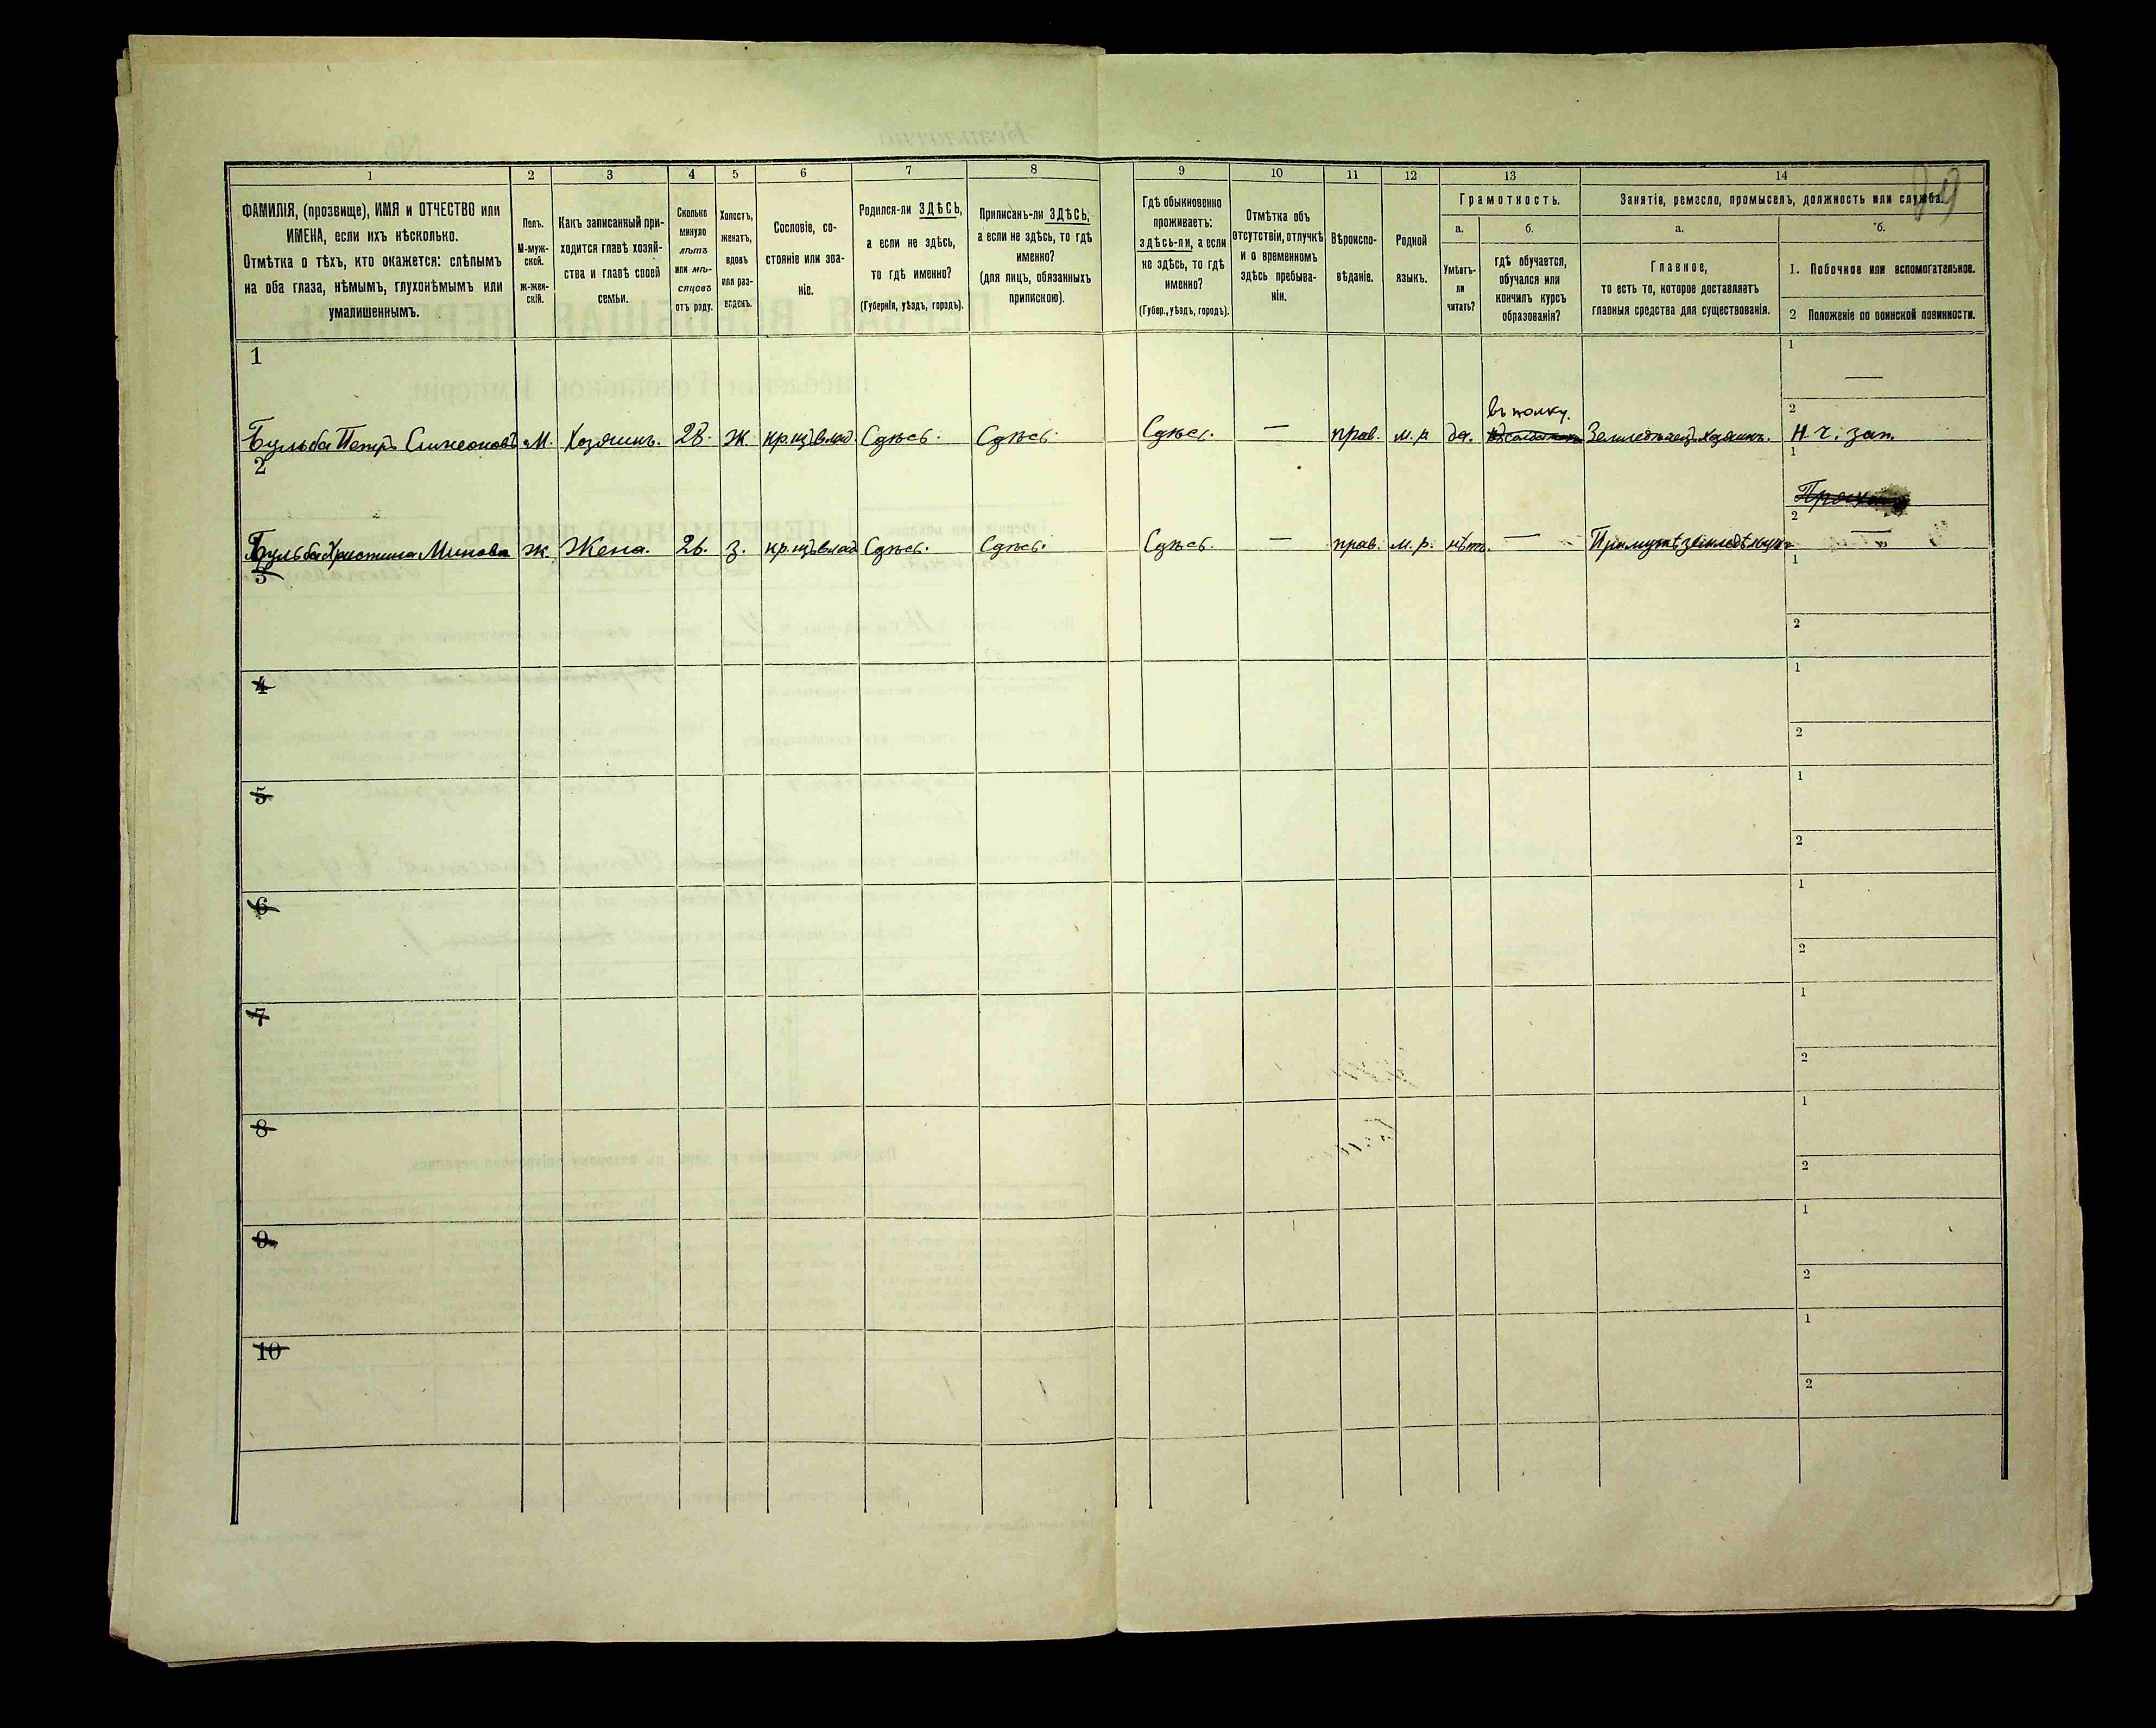 1 2 3 4 5 6 7 8 9 10 11 12 13 14
ФАМИЛІЯ, (прозвище), ИМЯ и ОТЧЕСТВО или
ИМЕНА, если ихъ нѣсколько.
Отмѣтка о тѣхъ, кто окажется: слѣпымъ
на оба глаза, нѣмымъ, глухонѣмымъ или
умалишеннымъ.
Полъ.
М-муж-
ской.
Ж-жен-
скій.
Какъ записанный при-
ходится главѣ хозяй-
ства и главѣ своей
семьи.
Сколько
минуло
лѣтъ
или мѣ-
сяцевъ
отъ роду.
Холостъ,
женатъ,
вдовъ
или раз-
веденъ.
Сословіе, со-
стояніе или зва-
ніе.
Родился-ли ЗДѢСЬ,
а если не здѣсь,
то гдѣ именно?
(Губернія, уѣздъ, городъ).
Приписанъ-ли ЗДѢСЬ,
а если не здѣсь, то гдѣ
именно?
(для лицъ, обязанныхъ
припискою).
Гдѣ обыкновенно
проживаетъ:
здѣсь-ли, а если
не здѣсь, то гдѣ
именно?
(Губер., уѣздъ, городъ).
Отмѣтка объ
отсутствіи, отлучкѣ
и о временномъ
здѣсь пребыва-
ніи.
Вѣроиспо-
вѣданіе.
Родной
языкъ.
Грамотность.
а.
Умѣетъ-
ли
читать?
б.
гдѣ обучается,
обучался или
кончилъ курсъ
образованія?
Занятія, ремесло, промыселъ, должность или служба.
а.
Главное,
то есть то, которое доставляетъ
главныя средства для существованія.
б.
1. Побочное или вспомогательное.
2 Положеніе по воинской повинности.
1
1 —
въ полку.
2
Бульба Петръ Симеоновъ М. Хозяинъ. 28. Ж. кр. изъ влад. Сдѣсь. Сдѣсь. Сдѣсь. — прав. м. р. да. Земледѣлецъ. Хозяинъ. Н. ч. зап.
2
1
2 —
Бульба Христина Минова ж. Жена. 26. з. кр. изъ влад. Сдѣсь. Сдѣсь. Сдѣсь. — прав. м. р. нѣтъ. — При мужѣ земледѣліе
3
1
2
4
1
2
5
1
2
6
1
2
7
1
2
8
1
2
9
1
2
10
1
2